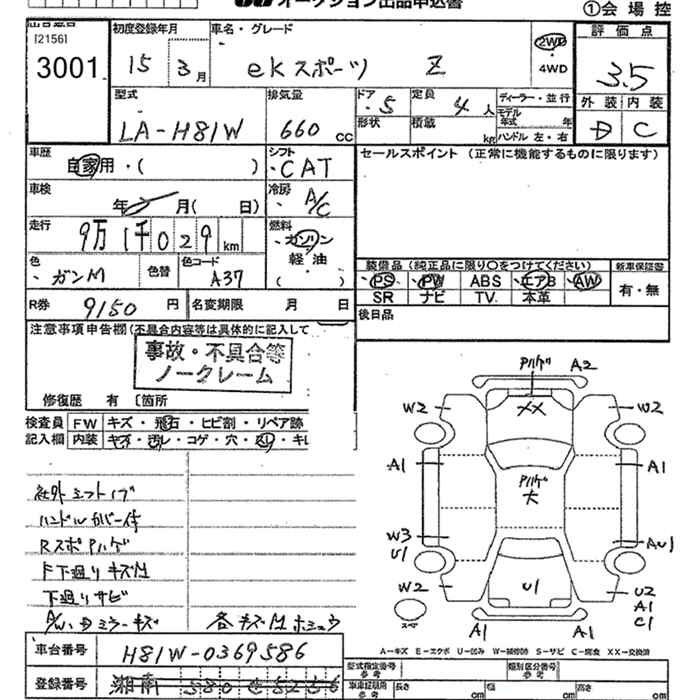 オークション出品申込書
①会場控
[2156]
3001
初度登録年月
15 3月
車名・グレード
ekスポーツ Z
2WD
・
4WD
評価点
3.5
外装 内装
D C
型式
LA-H81W
排気量
660 cc
ドア
・5
定員
4人
形状
積載
kg
ディーラー・並行
モデル年式 年
ハンドル 左・右
車歴
自家用・( )
シフト
・CAT
車検
年 月( 日)
冷房
・A/C
走行
9万1千029km
燃料
・ガソリン
軽油
( )
色
・ガンM
色替
色コード
A37
R券 9150円
名変期限 月 日
セールスポイント (正常に機能するものに限ります)
装備品 (純正品に限り○をつけてください)
・PS ・PW ABS ・エアB ・AW
SR ナビ TV. 本革
新車保証書
有・無
後日品
注意事項申告欄(不具合内容等は具体的に記入して
事故・不具合等
ノークレーム
修復歴 有 〔箇所
検査員記入欄
FW キズ・飛石・ヒビ割・リペア跡
内装 キズ・汚レ・コゲ・穴・スレ・キレ
社外シフトノブ
ハンドルカバー付
RスポPハゲ
F下廻りキズM
下廻りサビ
A/W・Dミラーキズ
各キズMホシュウ
Pハゲ A2
W2 XX W2
A1 Pハゲ A1
大
W3 AU1
U1
W2 U1 U2
A1
C1
スペア
A1 A1
A…キズ E…エクボ U…凹み W…補修跡 S…サビ C…腐食 XX…交換済
車台番号 H81W-0369586
登録番号 湘南 580 そ 8256
型式指定番号 参考
類別区分番号 参考
車庫証明用 参考
長さ cm
幅 cm
高さ cm